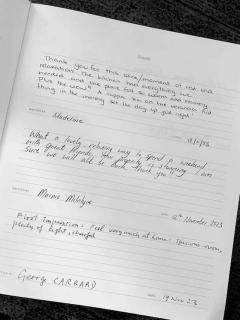 Thank you for this slice/moment of rest and
relaxation. The kitchen had everything we
needed and the place felt so warm and homely
Plus the view!! A cuppa tea on the verandah first
thing in the morning set the day up just right!
Madeline
What a lovely, relaxing way to spend a weekend
with great friends. The property is stunning. I am
sure we will all be back. Thank you
Marnie McIntyre
12th November 2023
First Impression: Feel very much at home. Spacious rooms,
plenty of light, cheerful
Gerry CARRARD
DATE 19 Nov 23